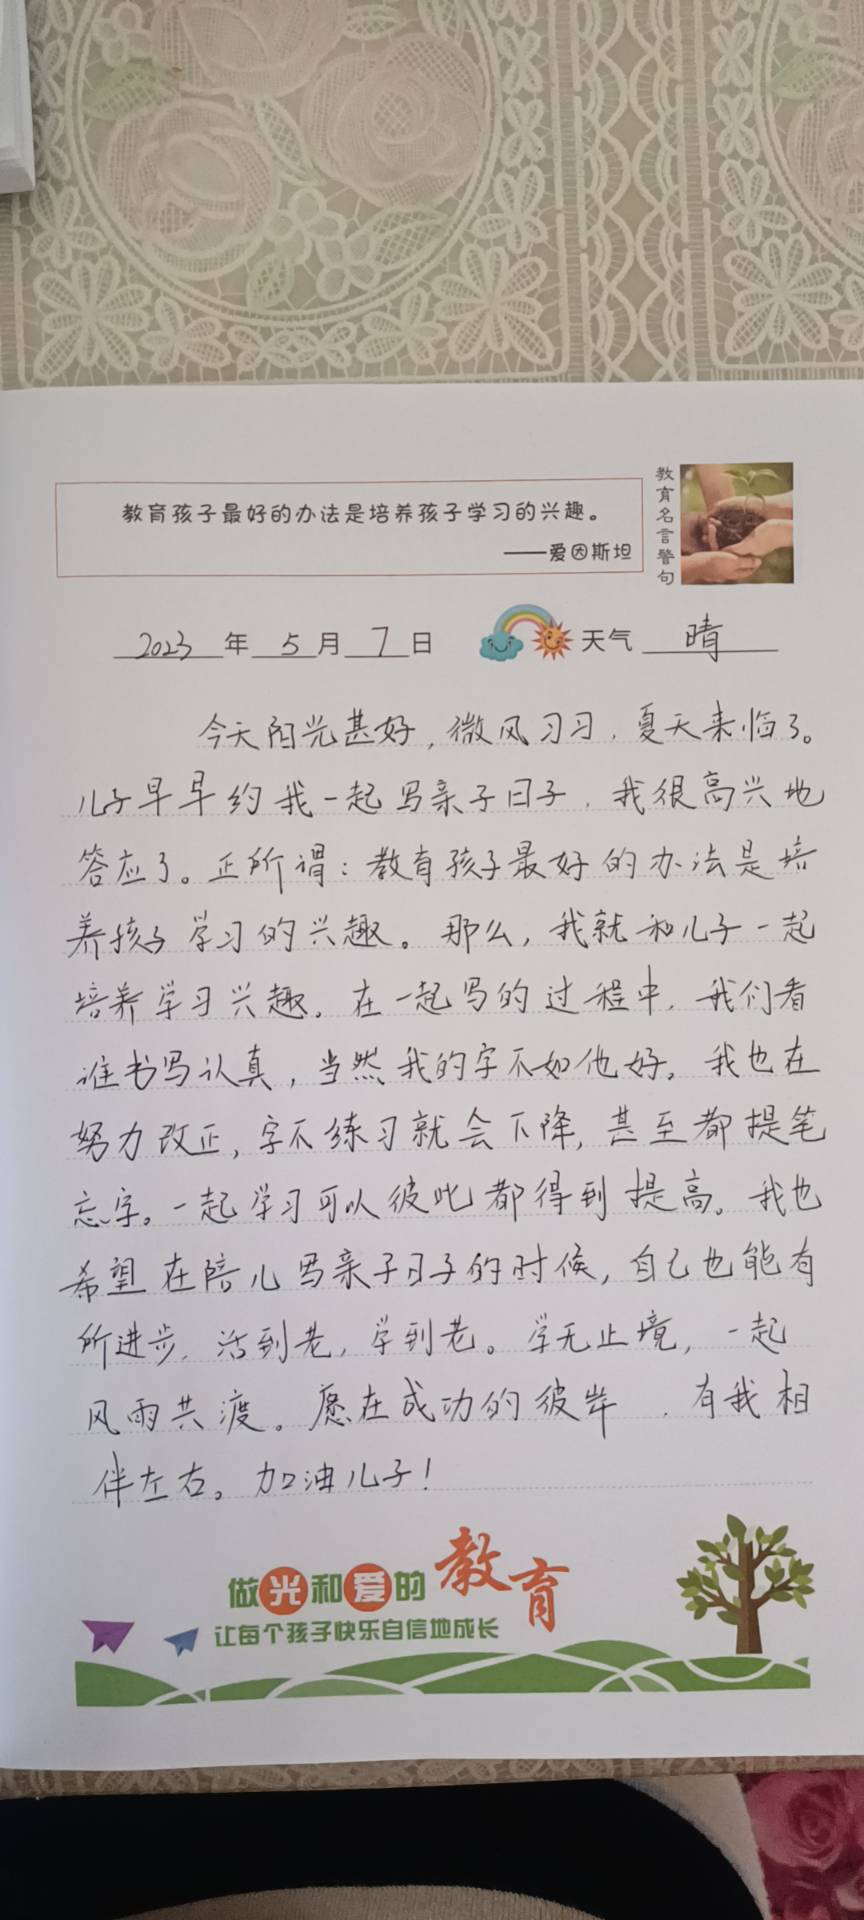 教育孩子最好的办法是培养孩子学习的兴趣。
——爱因斯坦
教育名言警句
2023年5月7日 天气 晴
今天阳光甚好，微风习习，夏天来临了。
儿子早早约我一起写亲子日子，我很高兴地
答应了。正所谓：教育孩子最好的办法是培
养孩子学习的兴趣。那么，我就和儿子一起
培养学习兴趣。在一起写的过程中，我们看
谁书写认真，当然我的字不如他好。我也在
努力改正，字不练习就会下降，甚至都提笔
忘字。一起学习可以彼此都得到提高。我也
希望在陪儿写亲子日子的时候，自己也能有
所进步，活到老，学到老。学无止境，一起
风雨共渡。愿在成功的彼岸，有我相
伴左右。加油儿子！
做光和爱的教育
让每个孩子快乐自信地成长